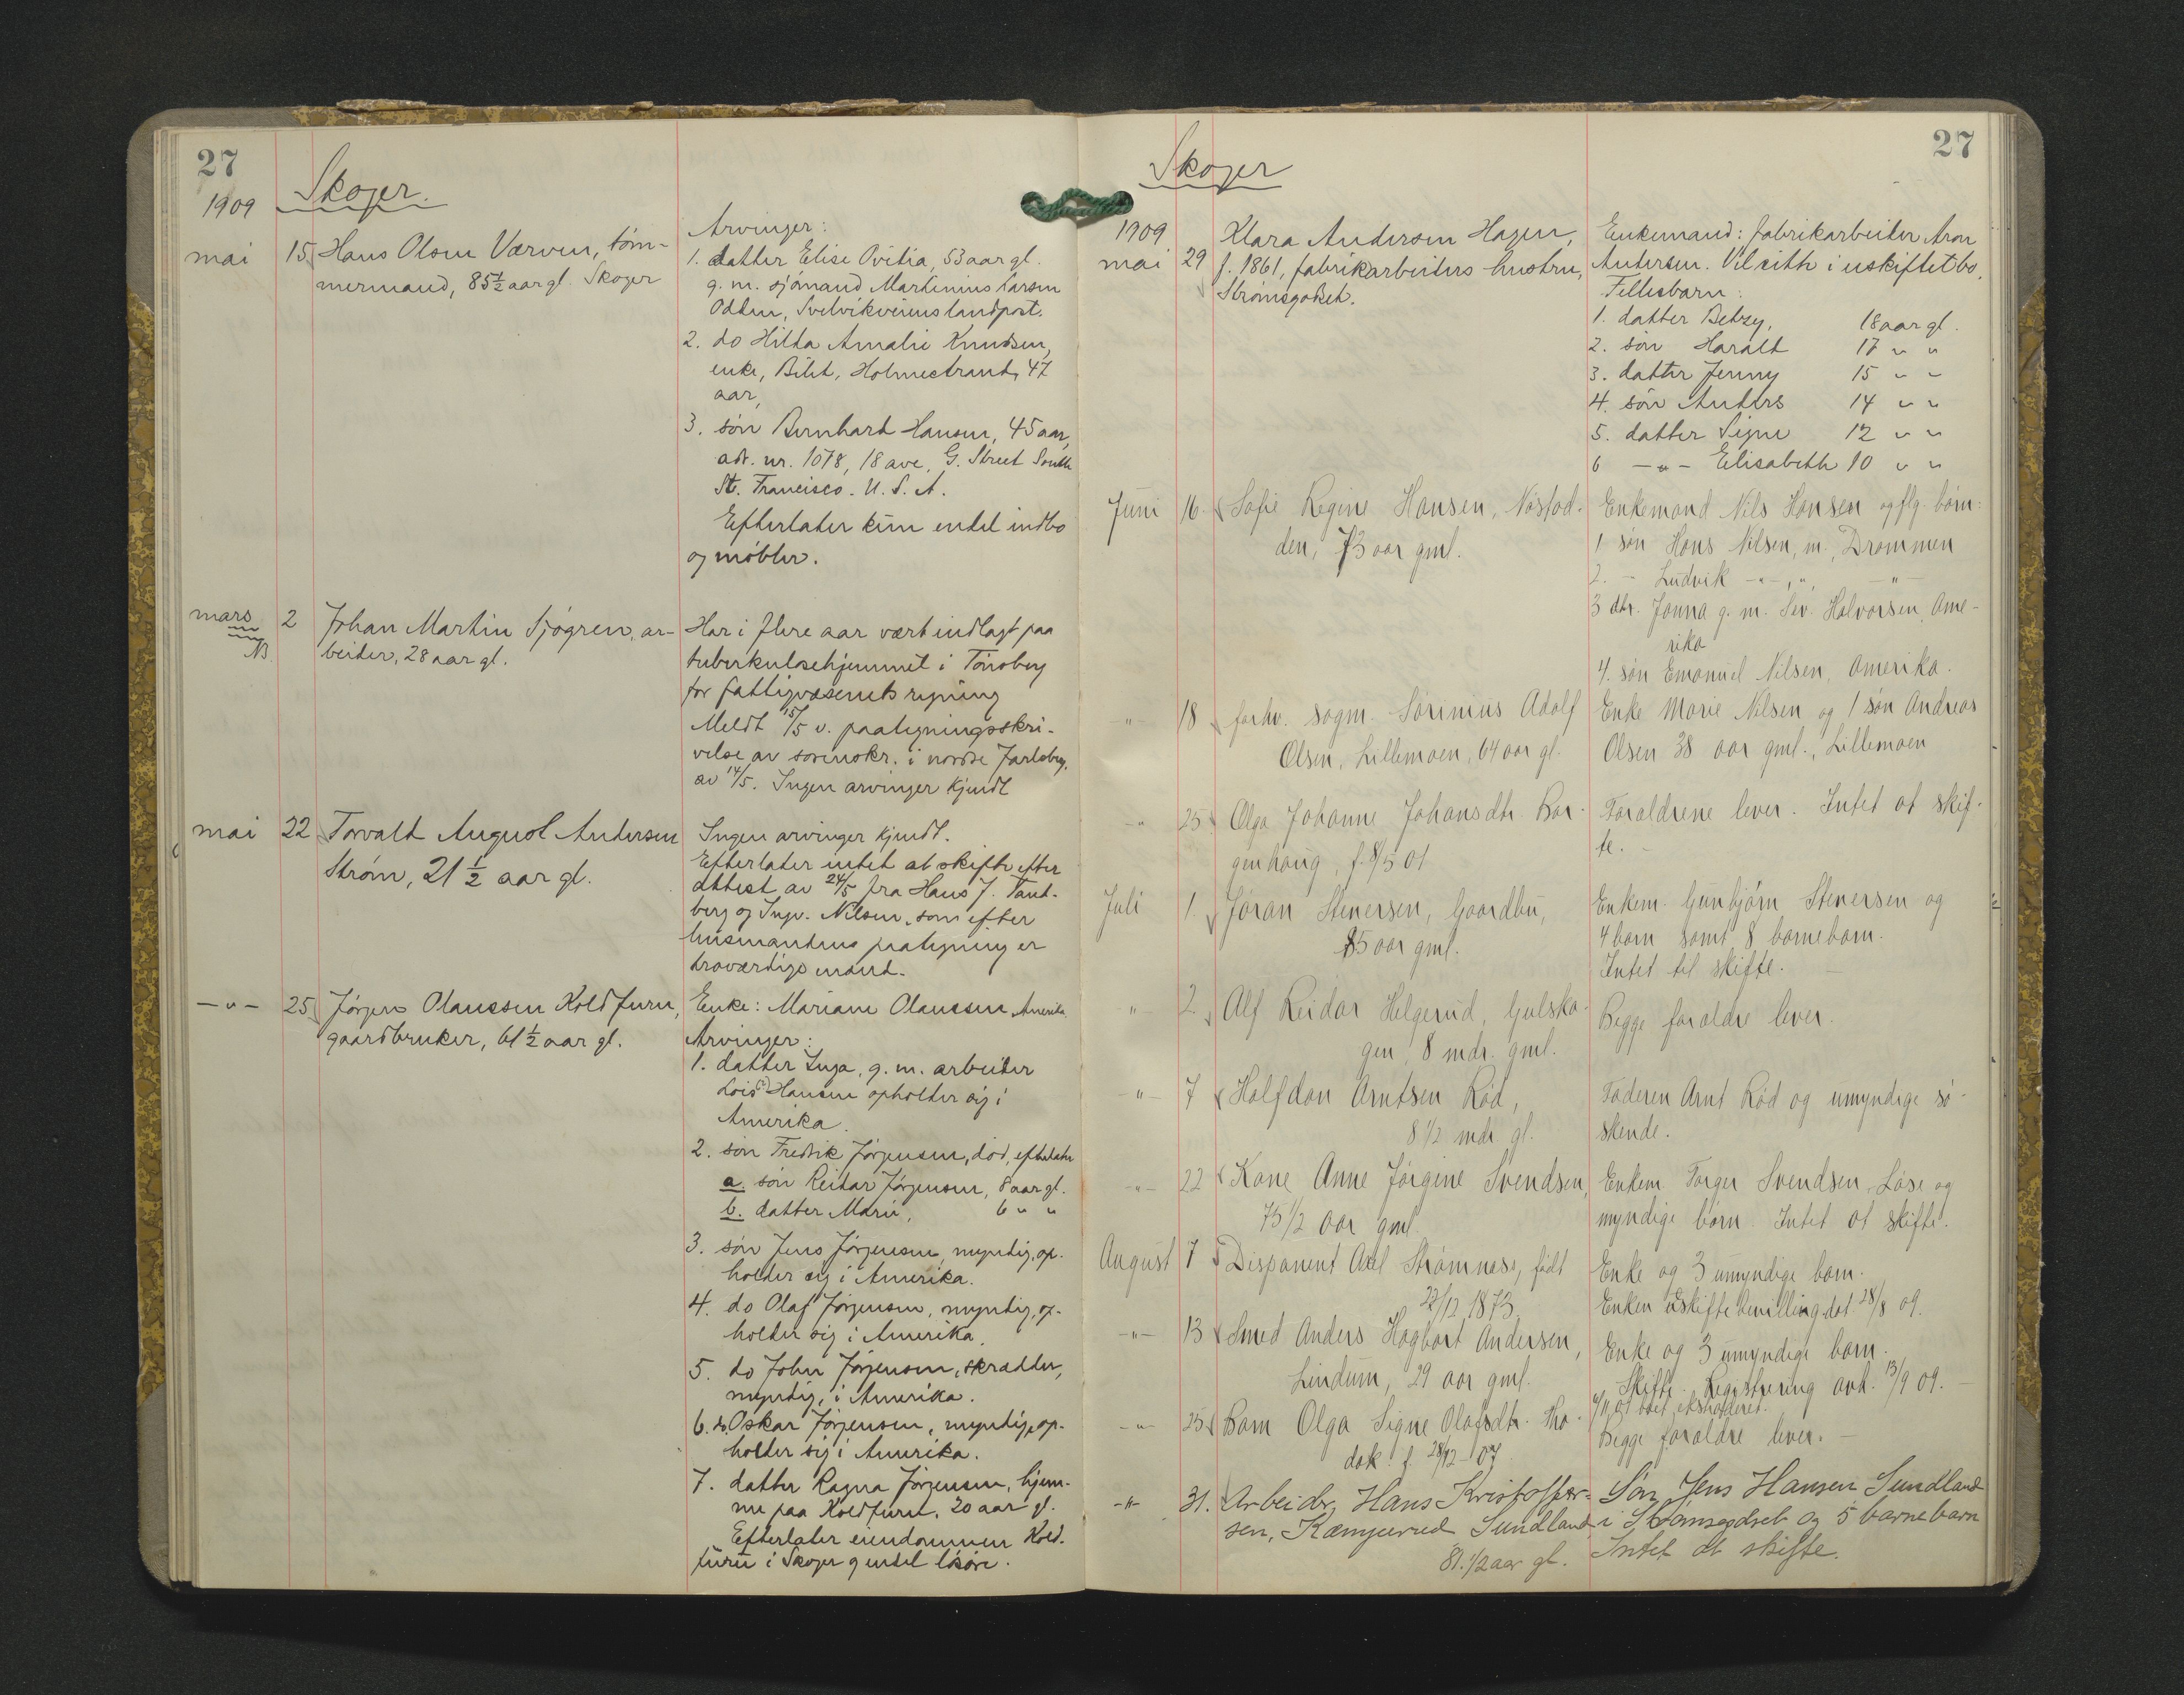 27
Skoger.
1909
mai 15 Hans Olsen Værven, tøm-
mermand, 85½ aar gl. Skoger
Arvinger:
1. datter Elise Ovidia, 53 aar gl.
g. m. sjømand Martinius Larsen
Odden, Svelvikveiens landpost.
2. do Hilda Amalie Knudsen,
enke, Holmestrand, 47
aar,
3. søn Bernhard Hansen, 45 aar,
adr. nr. 1078, 18 ave, G. Street South
St. Francisco. U. S. A.
Efterlater kun endel indbo
og møbler.
mars 2 Johan Martin Sjøgren, ar-
NB beider, 28 aar gl.
Har i flere aar vært indlagt paa
tuberkulosehjemmet i Tønsberg
for fattigvæsenets regning
Meldt 15/5 v. paategningsskri-
velse av sorenskr. i nordre Jarlsberg.
av 14/5. Ingen arvinger kjendt
mai 22 Torvald August Andersen
Strøm, 21½ aar gl.
Ingen arvinger kjendt.
Efterlater intet at skifte efter
attest av 24/5 fra Hans J. Tand-
berg og Ingv. Nilsen, som efter
lensmandens paategning er
troværdige mænd.
-"- 25 Jørgen Olaussen Koldfuru,
gaardbruker, 61½ aar gl.
Enke: Mariane Olaussen, Amerika
Arvinger:
1. datter Inga, g. m. arbeider
Lois Hansen opholder sig i
Amerika.
2. søn Fredrik Jørgensen, død, efterlater
a. søn Reidar Jørgensen, 8 aar gl.
b. datter Marie, 6 " "
3. søn Jens Jørgensen, myndig, op-
holder sig i Amerika.
4. do Olaf Jørgensen, myndig, op-
holder sig i Amerika.
5. do John Jørgensen, skrædder,
myndig, i Amerika.
6. do. Oskar Jørgensen, myndig, op-
holder sig i Amerika.
7. datter Ragna Jørgensen, hjem-
me paa Koldfuru, 20 aar gl.
Efterlater eiendommen Kold-
furu i Skoger og endel løsøre.
27
Skoger
1909
mai 29 Klara Andersen Hagen,
f. 1861, fabrikarbeiders hustru,
Strømsgodset.
Enkemand: fabrikarbeider Aron
Andersen. Vil sitte i uskiftet bo.
Fellesbarn:
1. datter Betzy, 18 aar gl.
2. søn Harald 17 " "
3. datter Jenny 15 " "
4. søn Anders 14 " "
5. datter Signe 12 " "
6 -"- Elisabeth 10 " "
Juni 16. Sofie Regine Hansen, Nøstod-
den, 73 aar gml.
Enkemand Nils Hansen og flg. børn:
1 søn Hans Nilsen, m., Drammen
2. - Ludvik -"-, ", -"-
3 dtr. Jonna g. m. Sev. Halvorsen, Ame-
rika
4. søn Emanuel Nilsen, Amerika.
-"- 18 forhv. sagm. Sørinius Adolf
Olsen, Lillemoen, 64 aar gl.
Enke Marie Nilsen og 1 søn Andreas
Olsen 38 aar gml., Lillemoen
-"- 25. Olga Johanne Johansdtr. Bor-
genhaug, f. 8/5 01
Forældrene lever. Intet at skif-
te. -
Juli 1. Jøran Stenersen, Gaardbu,
85 aar gml.
Enkem. Gunbjørn Stenersen og
4 barn samt 8 barnebarn.
Intet til skifte. -
-"- 2 Alf Reidar Helgerud, Gulsko-
gen, 8 mdr. gml.
Begge forældre lever.
-"- 7 Halfdan Arntsen Rød,
8 1/2 mdr gl.
Faderen Arnt Rød og umyndige sø-
skende.
-"- 22 Kone Anne Jørgine Svendsen,
75 1/2 aar gml
Enkem Torger Svendsen, og
myndige børn. Intet at skifte.
August 7 Disponent Axel Strømnæs, født
22/12 1873
Enke og 3 umyndige barn.
Enken uskiftebevilling dat. 28/8 09.
-"- 13 Smed Anders Hagbart Andersen,
Lindum, 29 aar gml.
Enke og 3 umyndige barn.
Skifte. Registrering avh. 13/9 09. -
boet ekstraderet.
-"- 25 Barn Olga Signe Olafsdtr. Sko-
dok. f. 28/12 07
Begge forældre lever. -
-"- 31. Arbeidr, Hans Kristoffer-
sen, Kæmperud Sundland
81.1/2 aar gl.
Søn Jens Hansen Sundland
i Strømsgodset og 5 barnebarn
Intet at skifte.